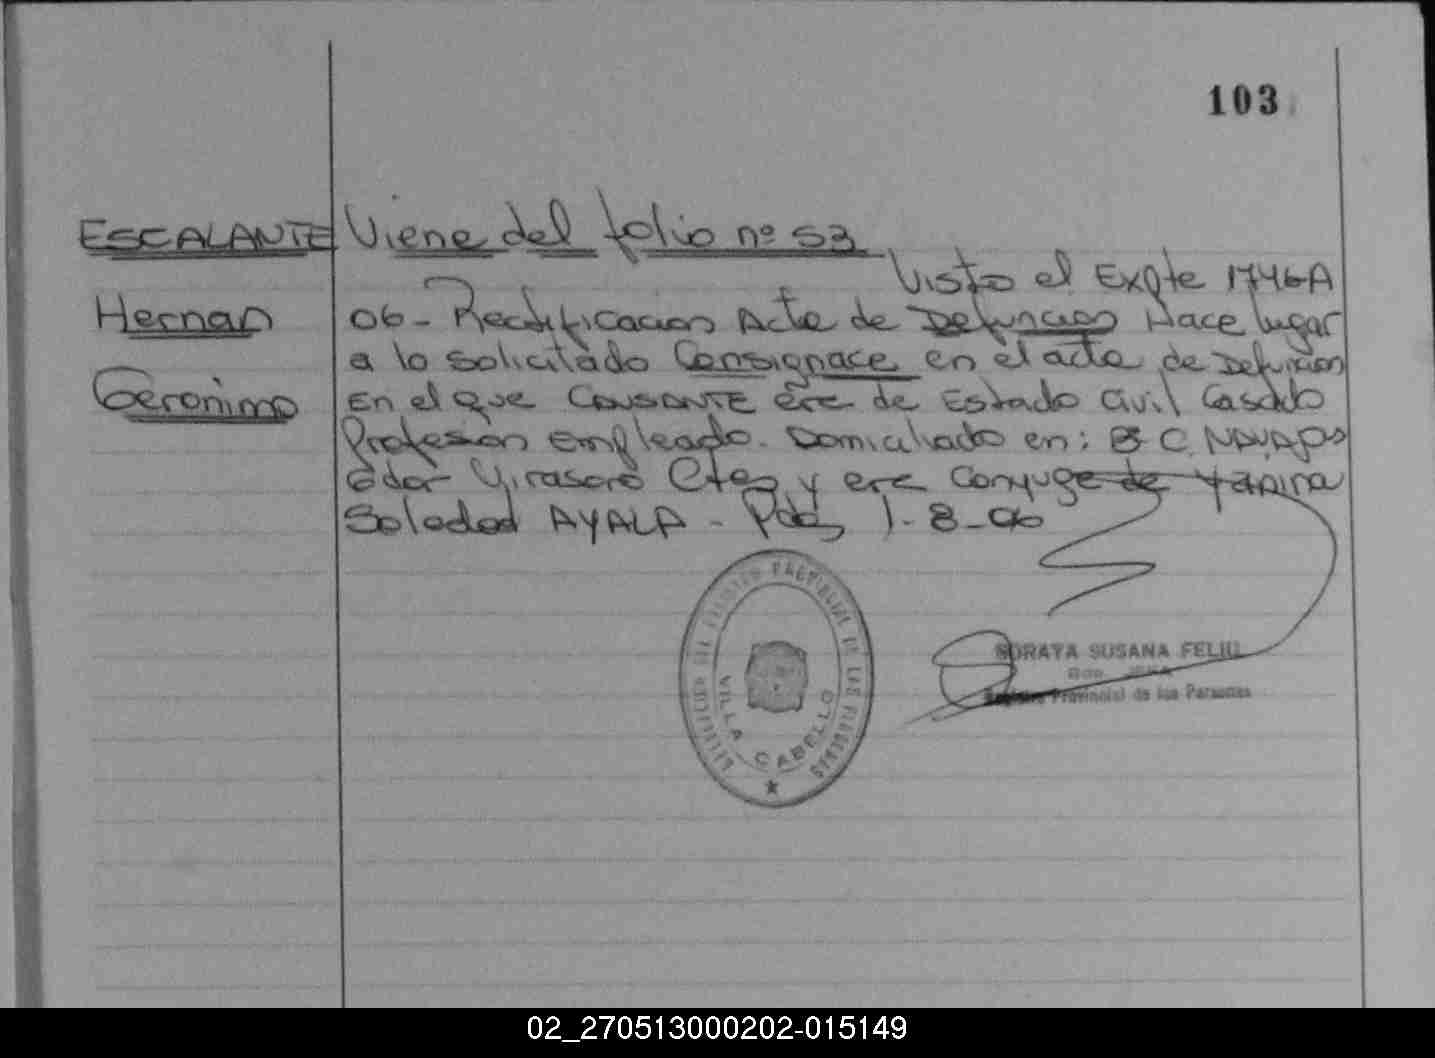 103
ESCALANTE
Hernan
Geronimo
Viene del folio nº 53
Visto el Expte 1746A
06- Rectificacion Acta de Defuncion Hace lugar
a lo solicitado Consignace en el acta de Defuncion
En el que Causante era de Estado Civil Casado
Profesion Empleado. Domiciliado en: Bº C.
Gdor Virasoro Ctes y era Conyuge de Yanina
Soledad AYALA - Pdas 1-8-06
PROVINCIAL DE LAS PERSONAS
VILLA CABELLO
SORAYA SUSANA FELIU
Registro Provincial de las Personas
02_270513000202-015149